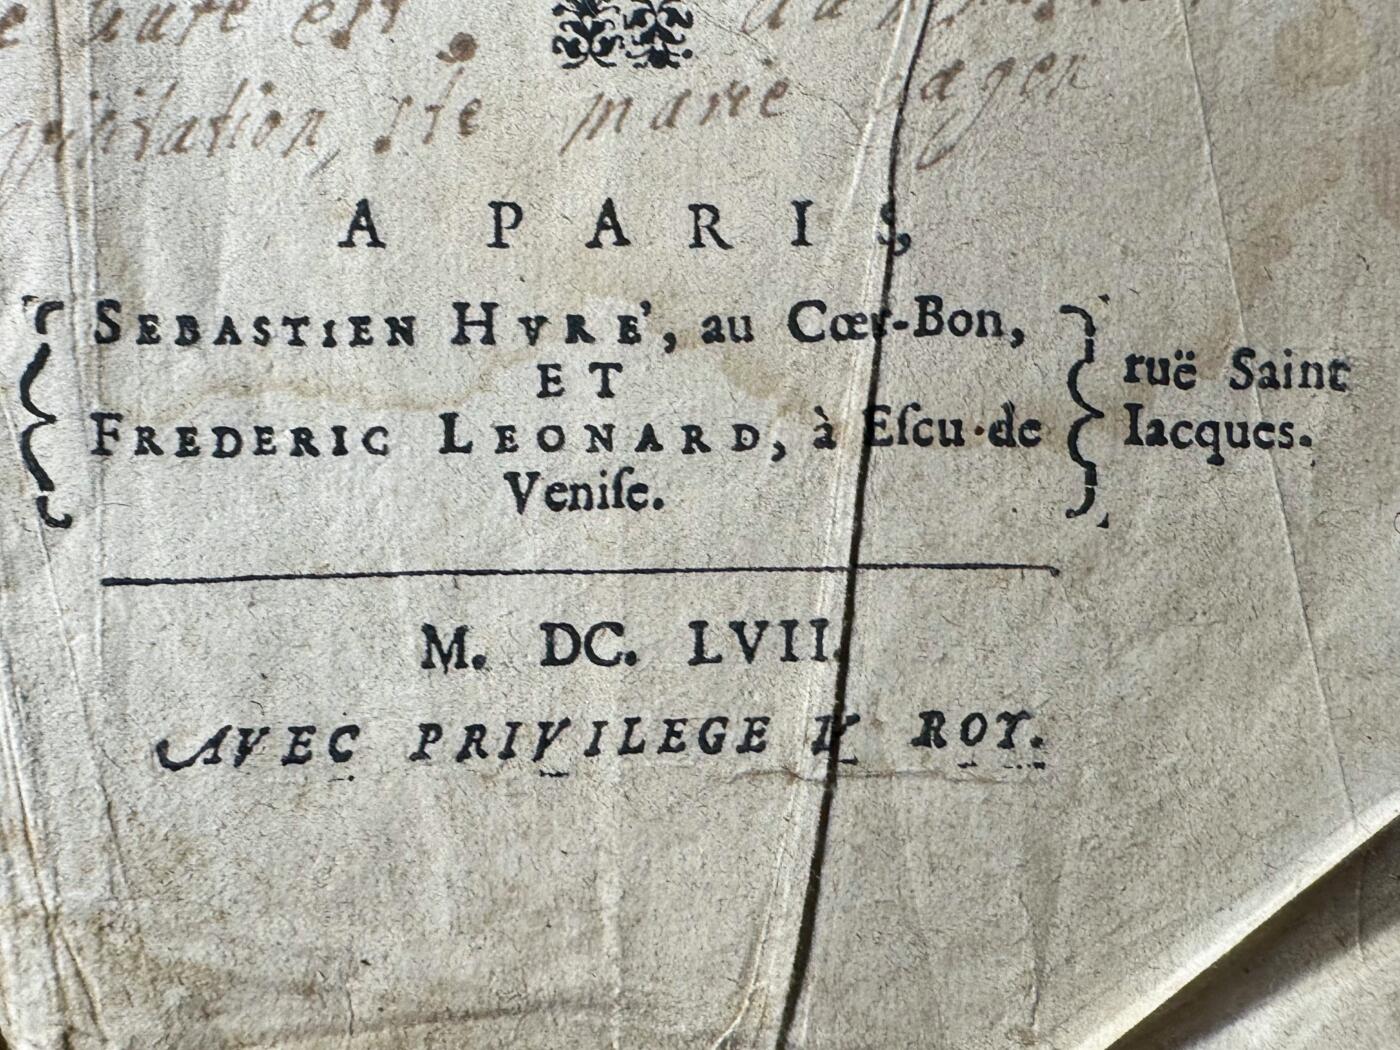 aure est
marie
A PARIS,
SEBASTIEN HVRE', au Cœur-Bon,
ET
FREDERIC LEONARD, à Eſcu·de
Veniſe.
ruë Saint
Iacques.
M. DC. LVII.
AVEC PRIVILEGE ROY.